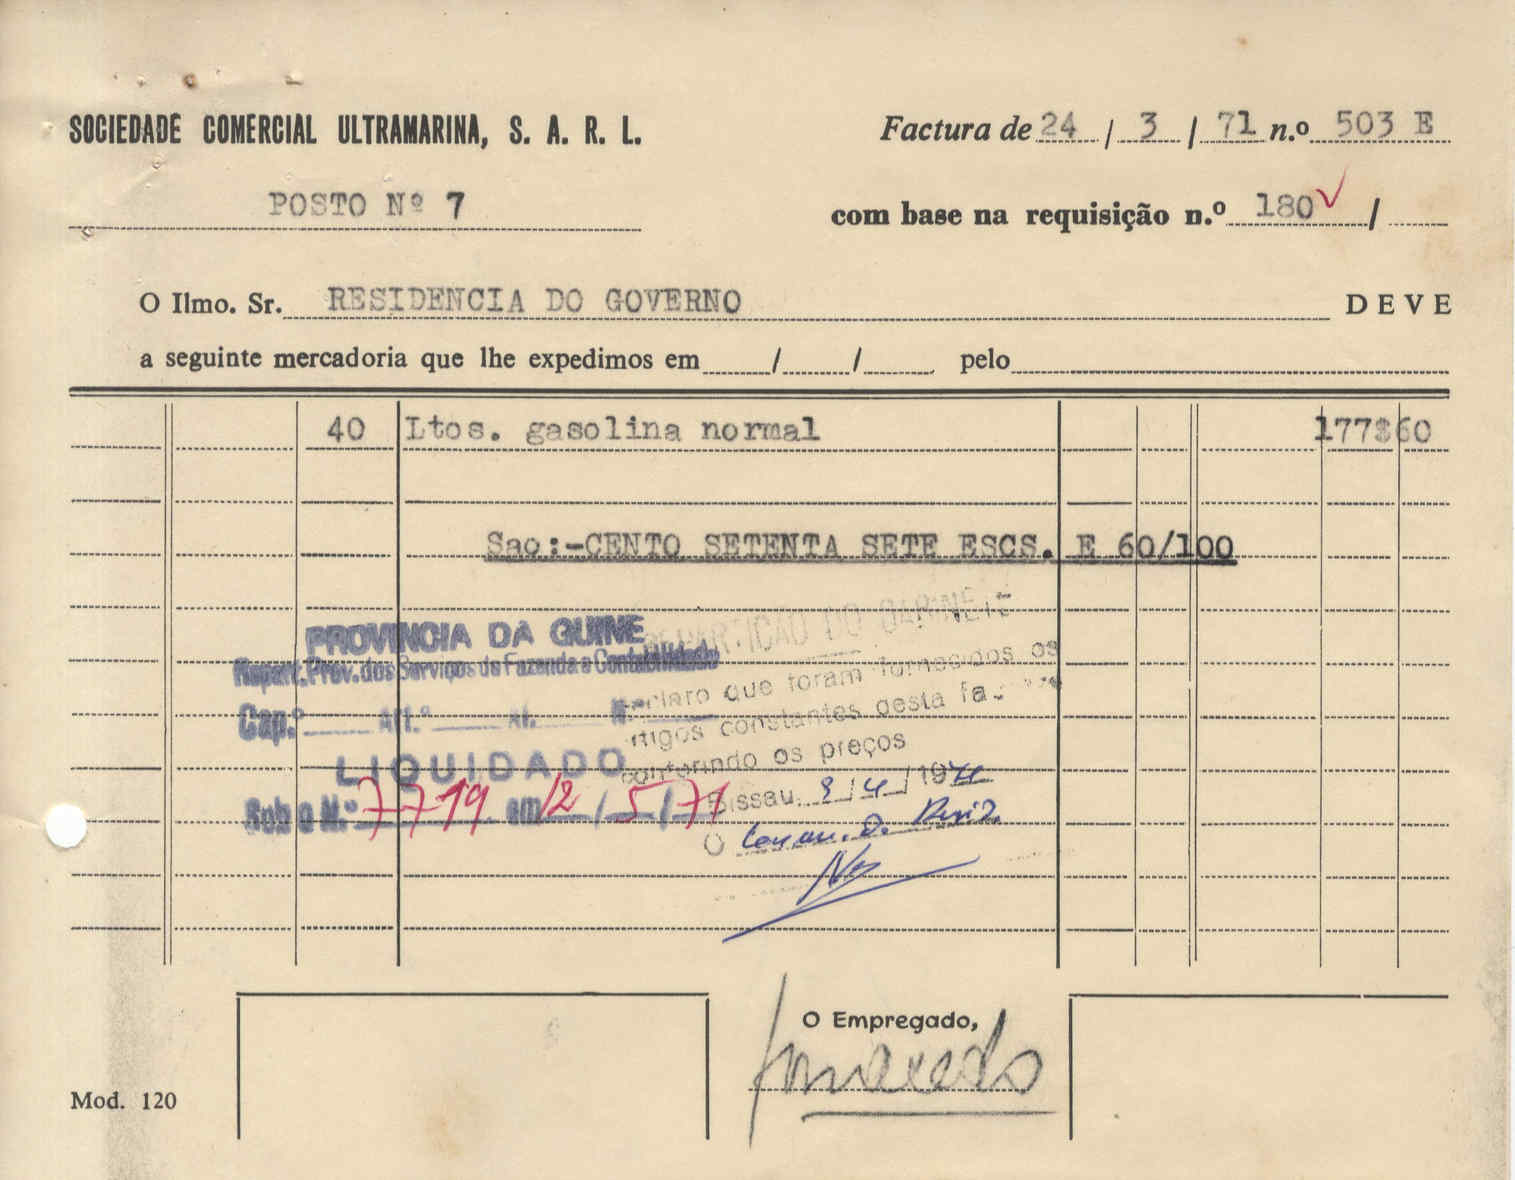 SOCIEDADE COMERCIAL ULTRAMARINA, S. A. R. L.
Factura de 24 / 3 / 71 n.º 503 E
POSTO Nº 7
com base na requisição n.º 180 /
O Ilmo. Sr. RESIDENCIA DO GOVERNO DEVE
a seguinte mercadoria que lhe expedimos em / / pelo
40 Ltos. gasolina normal 177$60
Sao:-CENTO SETENTA SETE ESCS. E 60/100
PROVINCIA DA GUINE
Repart. Prov. dos Serviços de Fazenda e Contabilidade
Cap.º Art.º N.º
LIQUIDADO
Sob o N.º 7779 em 12 / 5 / 71
REPARTIÇÃO DO GABINETE
Declaro que foram fornecidos os
artigos constantes desta
conferindo os preços
Bissau, / 4 / 1971
O
O Empregado,
Mod. 120